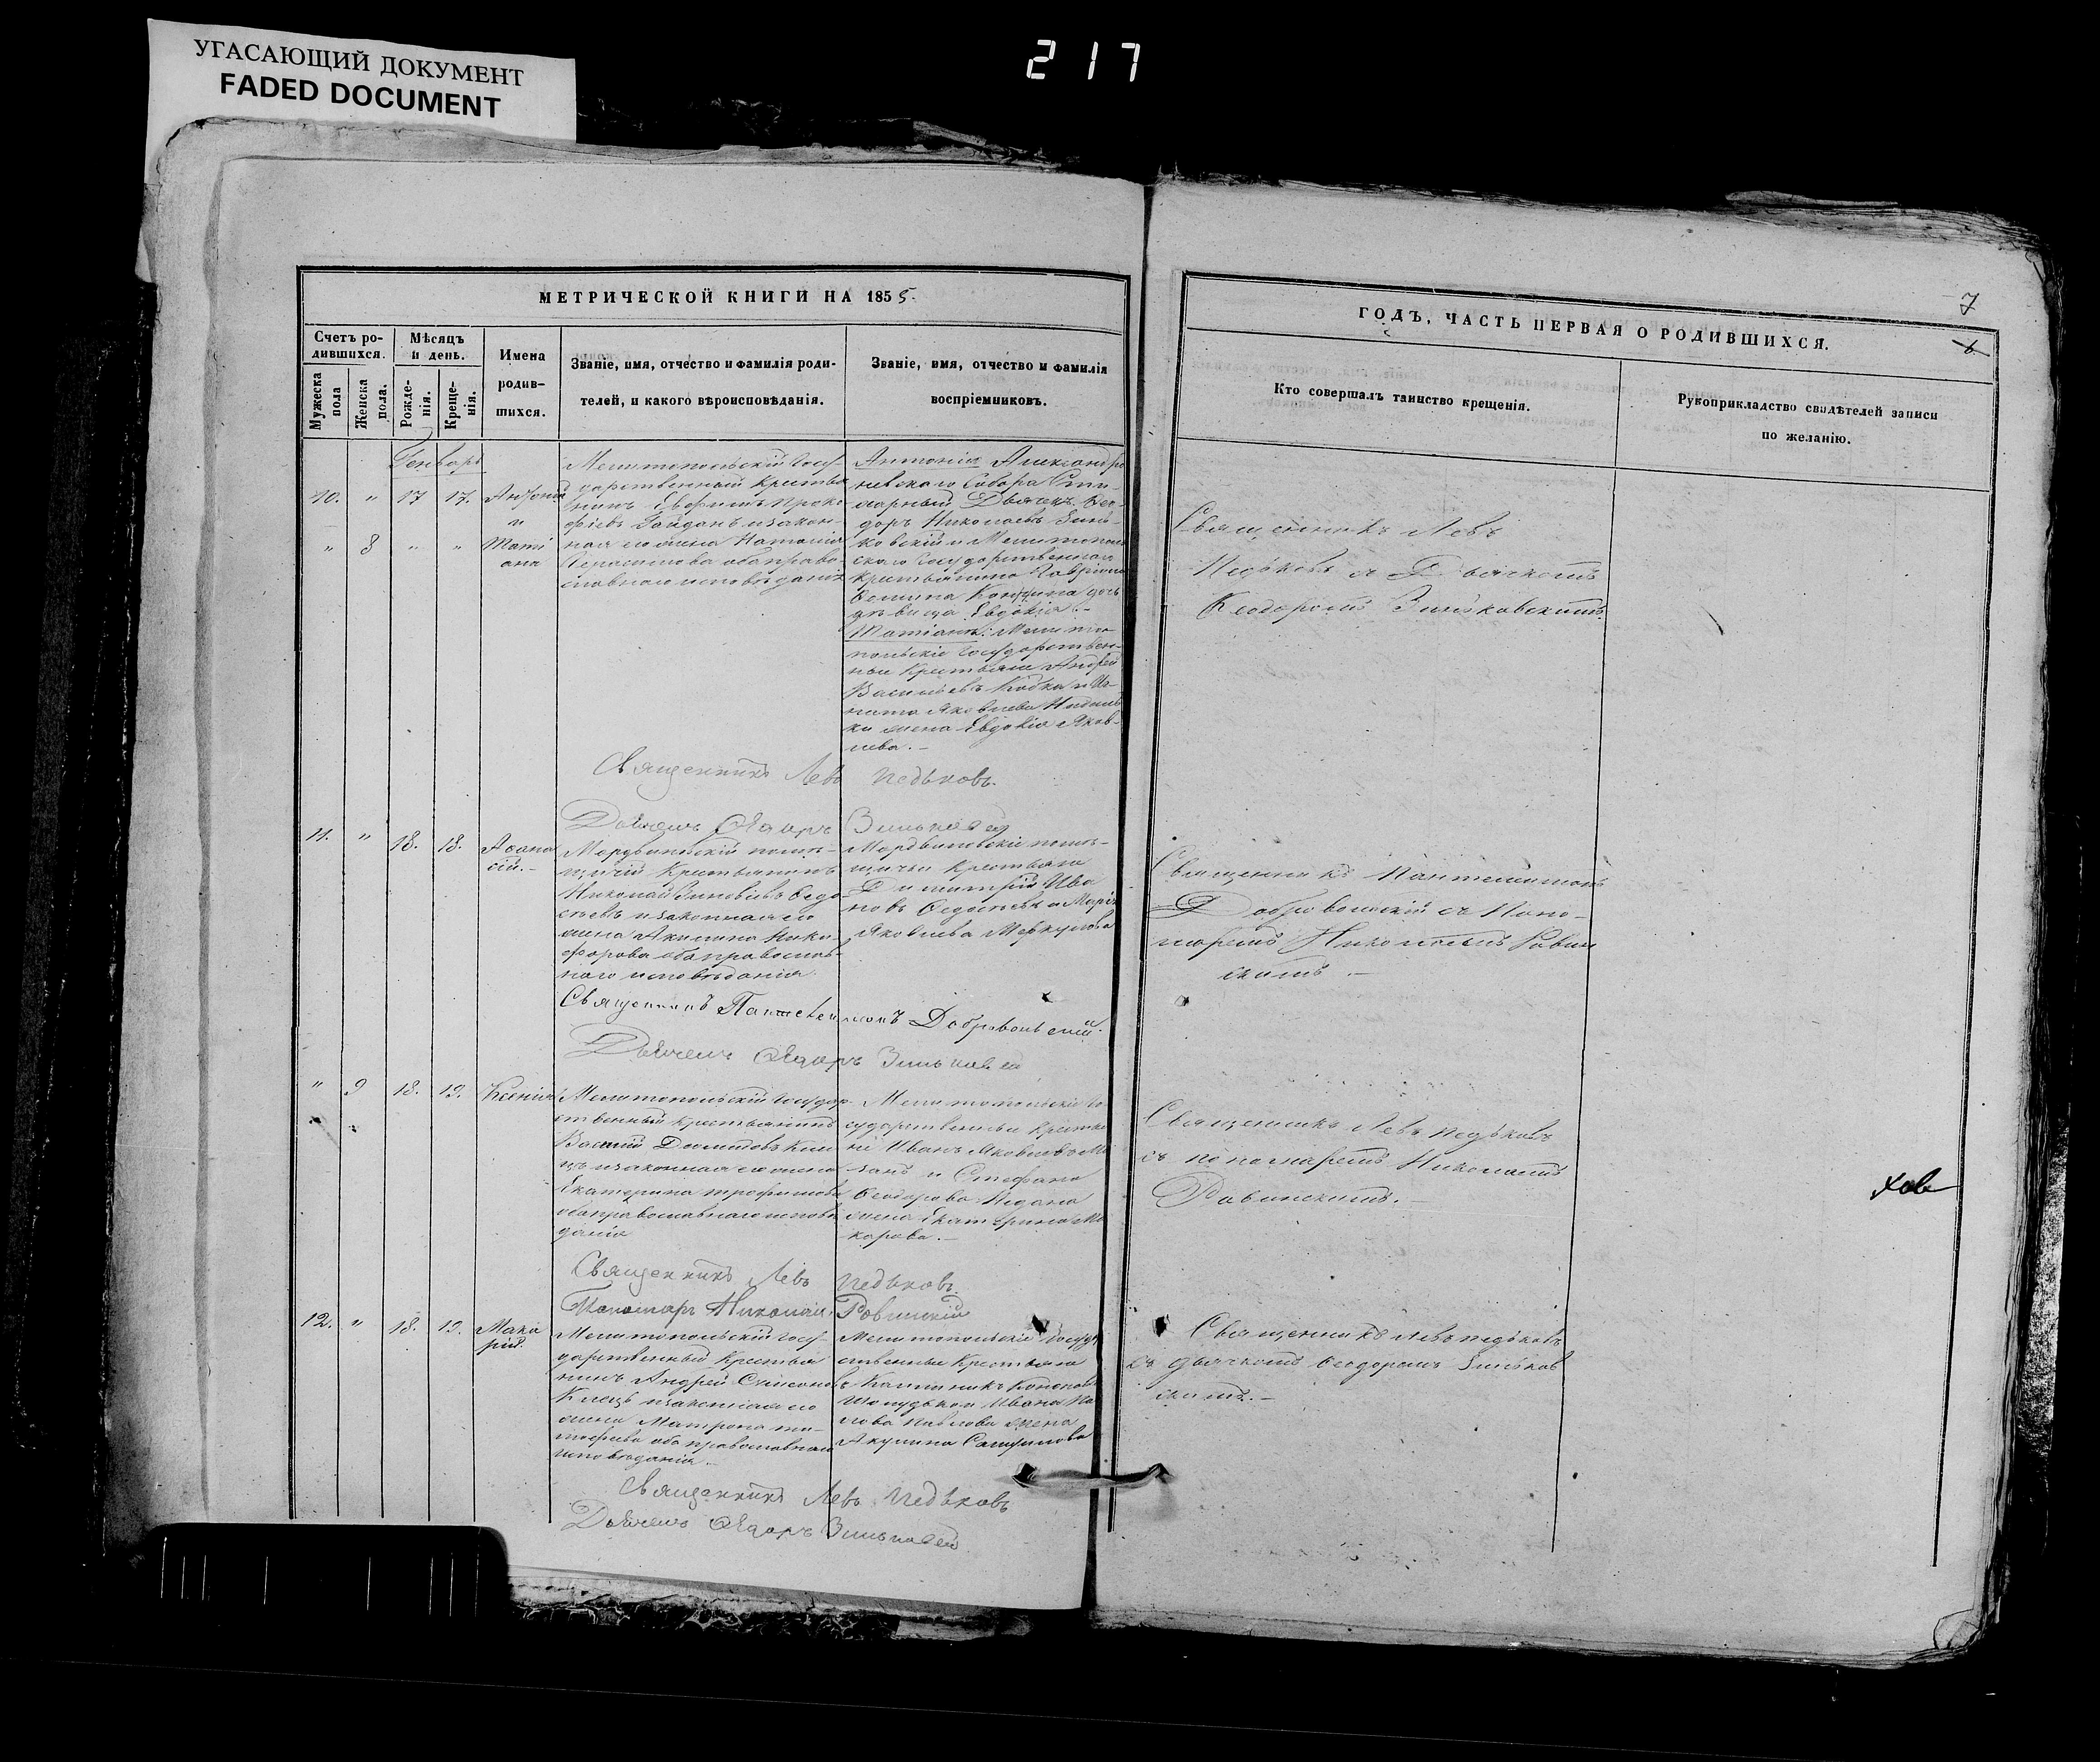 УГАСАЮЩИЙ ДОКУМЕНТ
FADED DOCUMENT
217
МЕТРИЧЕСКОЙ КНИГИ НА 1855.
Счетъ ро-
дившихся.
Мѣсяцъ
и день.
Мужеска
пола
Женска
пола.
Рожде-
нія.
Креще-
нія.
Имена
родив-
шихся.
Званіе, имя, отчество и фамилія роди-
телей, и какого вѣроисповѣданія.
Званіе, имя, отчество и фамилія
воспріемниковъ.
Генварь
10. " 17 17. Антоній
и
" 8 " " Таті
ана
Мелитопольскій Госу-
дарственный Крестья
нинъ Евфимъ Проко
фіевъ Гайданъ и закон-
ная его жена Наталія
Герасимова оба право-
славнаго исповѣданія
Антонія Александро
невскаго Собора Сти-
харный Дьячекъ Ѳео-
доръ Николаевъ Зинь-
ковскій и Мелитополь
скаго Государственнаго
Крестьянина
дочь
дѣвица Евдокія.-
Татіаны: Мелито-
польскіе Государствен-
ные Крестьяне Андрей
Васильевъ
жена Евдокія Яков-
лева.-
Священникъ Левъ Педьковъ.
Дьячекъ Ѳедоръ Зиньковск
11. " 18. 18. Аѳана
сій.-
Мордвиновскій помѣ-
щичій Крестьянинъ
Николай Зиновіевъ
и законная его
жена Акилина Ники-
форова оба православ-
наго исповѣданія
Мордвиновскіе помѣ-
щичьи Крестьяне
Димитрій Ива
новъ и Марія
Яковлева Меркулова
Священникъ Пантелеимонъ Добровольскій.
Дьячекъ Ѳедоръ Зиньковск
" 9 18. 19. Ксенія
Мелитопольскій Государ
ственный Крестьянинъ
Василій
и законная его жена
Екатерина Трофимова
оба православнаго исповѣ
данія
Мелитопольскіе Го
сударственные Крестья
не Иванъ Яковлевъ
и Стефана
Ѳеодорова
жена Екатерина Ма
карова.-
Священникъ Левъ Педьковъ.
Пономарь Николай Ровинскій
12. " 18. 19. Мака
рій.
Мелитопольскій Госу-
дарственный Крестья
нинъ Андрей Симоновъ
и законная его
жена Матрона Ти-
мофеева оба православнаго
исповѣданія.-
Мелитопольскіе Государ
ственные Крестьяне
Ивана Па
влова жена
Акулина
Священникъ Левъ Педьковъ
Дьячекъ Ѳедоръ Зиньковск
7
6
ГОДЪ, ЧАСТЬ ПЕРВАЯ О РОДИВШИХСЯ.
Кто совершалъ таинство крещенія.
Рукоприкладство свидѣтелей записи
по желанію.
Священникъ Левъ
Педьковъ съ Дьячкомъ
Ѳеодоромъ Зиньковскимъ.
Священникъ Пантелеимонъ
Добровольскій съ Поно-
маремъ Николаемъ Ровин
скимъ.-
Священникъ Левъ Педьковъ
съ пономаремъ Николаемъ
Ровинскимъ.-
Священникъ Левъ Педьковъ
съ дьячкомъ Ѳеодоромъ Зиньков
скимъ.-